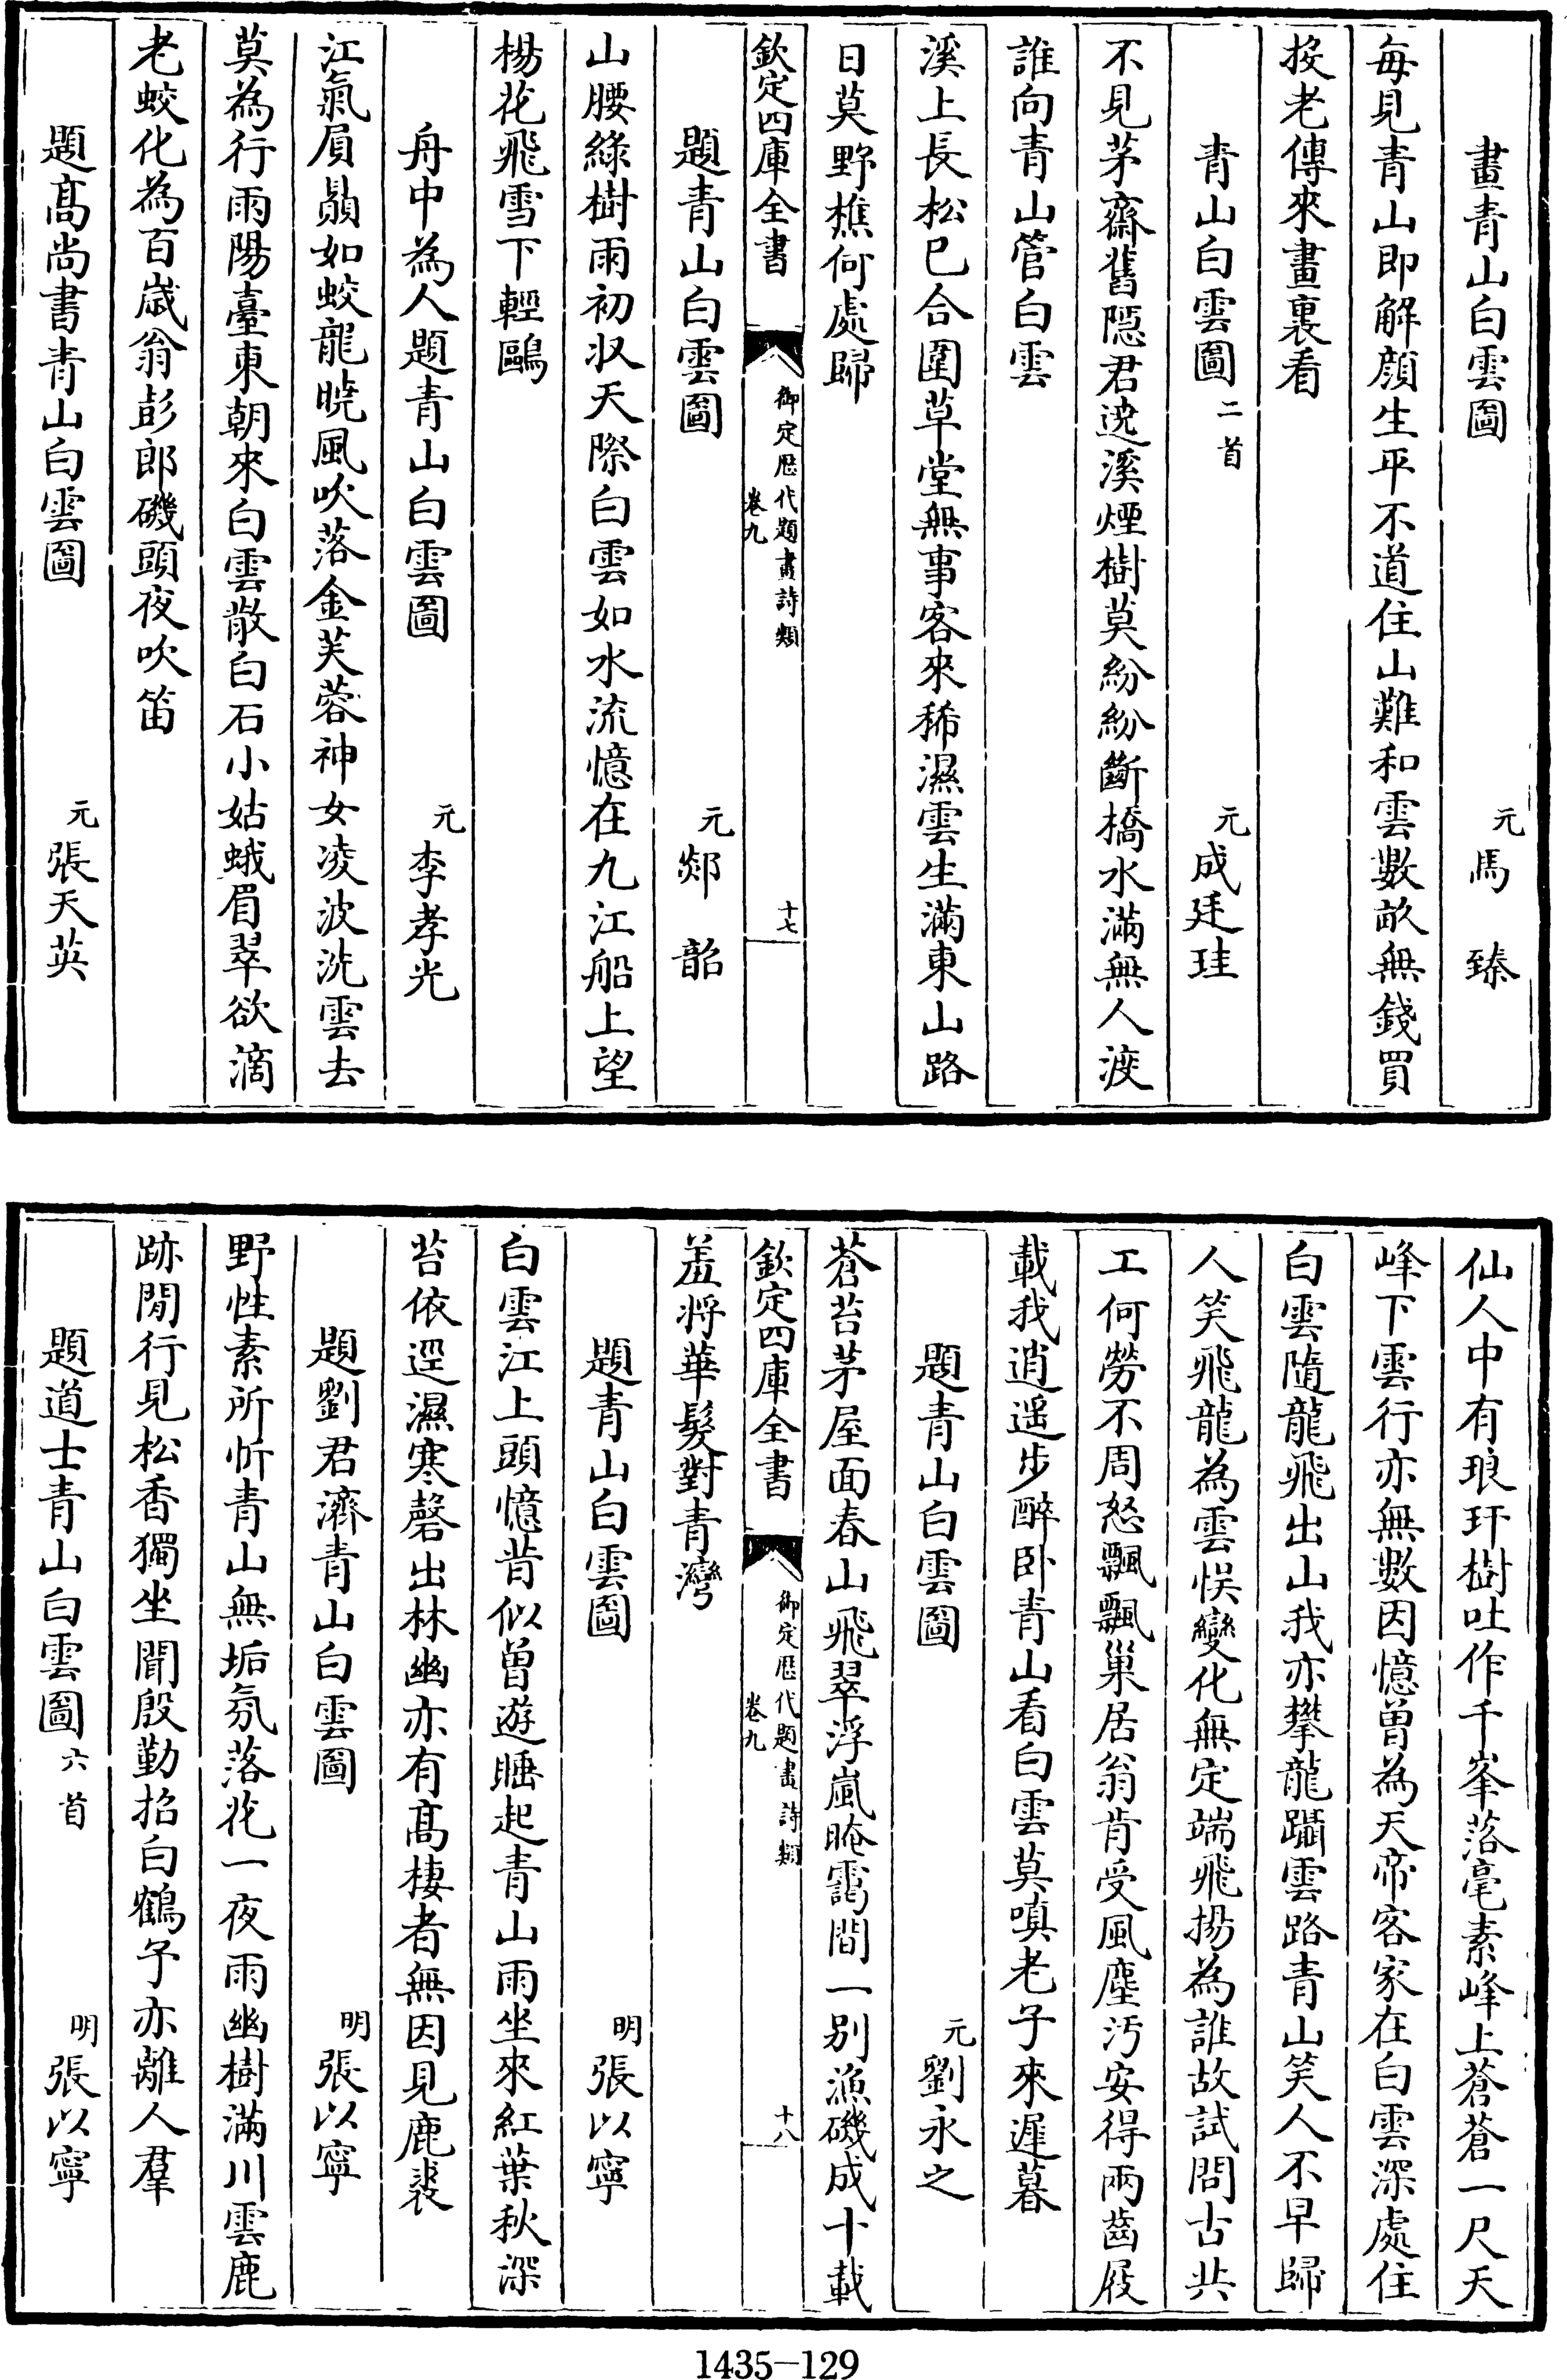 畫青山白雲圖 元馬臻
每見青山即解顔生平不道住山難和雲數畝無錢買
投老傳來畫裏看
青山白雲圖二首 元成廷珪
不見茅齋舊隠君遶溪煙樹莫紛紛斷橋水滿無人渡
誰向青山管白雲
溪上長松已合圍草堂無事客來稀濕雲生滿東山路
日莫野樵何處歸
欽定四庫全書 御定歴代題畫詩類 卷九 十七
題青山白雲圖 元郯韶
山腰綠樹雨初收天際白雲如水流憶在九江船上望
楊花飛雪下輕鷗
舟中為人題青山白雲圖 元李孝光
江氣屓贔如蛟龍曉風吹落金芙蓉神女凌波洗雲去
莫為行雨陽臺東朝來白雲散白石小姑蛾眉翠欲滴
老蛟化為百歲翁彭郎磯頭夜吹笛
題髙尚書青山白雲圖 元張天英
仙人中有琅玕樹吐作千峯落毫素峰上蒼蒼一尺天
峰下雲行亦無數因憶曽為天帝客家在白雲深處住
白雲隨龍飛出山我亦攀龍躡雲路青山笑人不早歸
人笑飛龍為雲悮變化無定端飛揚為誰故試問古共
工何勞不周怒飄飄巢居翁肯受風塵汚安得兩齒屐
載我逍遥步醉卧青山看白雲莫嗔老子來遲暮
題青山白雲圖 元劉永之
蒼苔茅屋面春山飛翠浮嵐晻靄間一別漁磯成十載
羞將華髮對青灣
欽定四庫全書 御定歴代題畫詩類 卷九 十八
題青山白雲圖 明張以寧
白雲江上頭憶昔似曽遊睡起青山雨坐來紅葉秋深
苔依逕濕寒磬出林幽亦有髙棲者無因見鹿裘
題劉君濟青山白雲圖 明張以寧
野性素所忻青山無垢氛落花一夜雨幽樹滿川雲鹿
跡閒行見松香獨坐聞殷勤招白鶴予亦離人羣
題道士青山白雲圖六首 明張以寧
1435-129